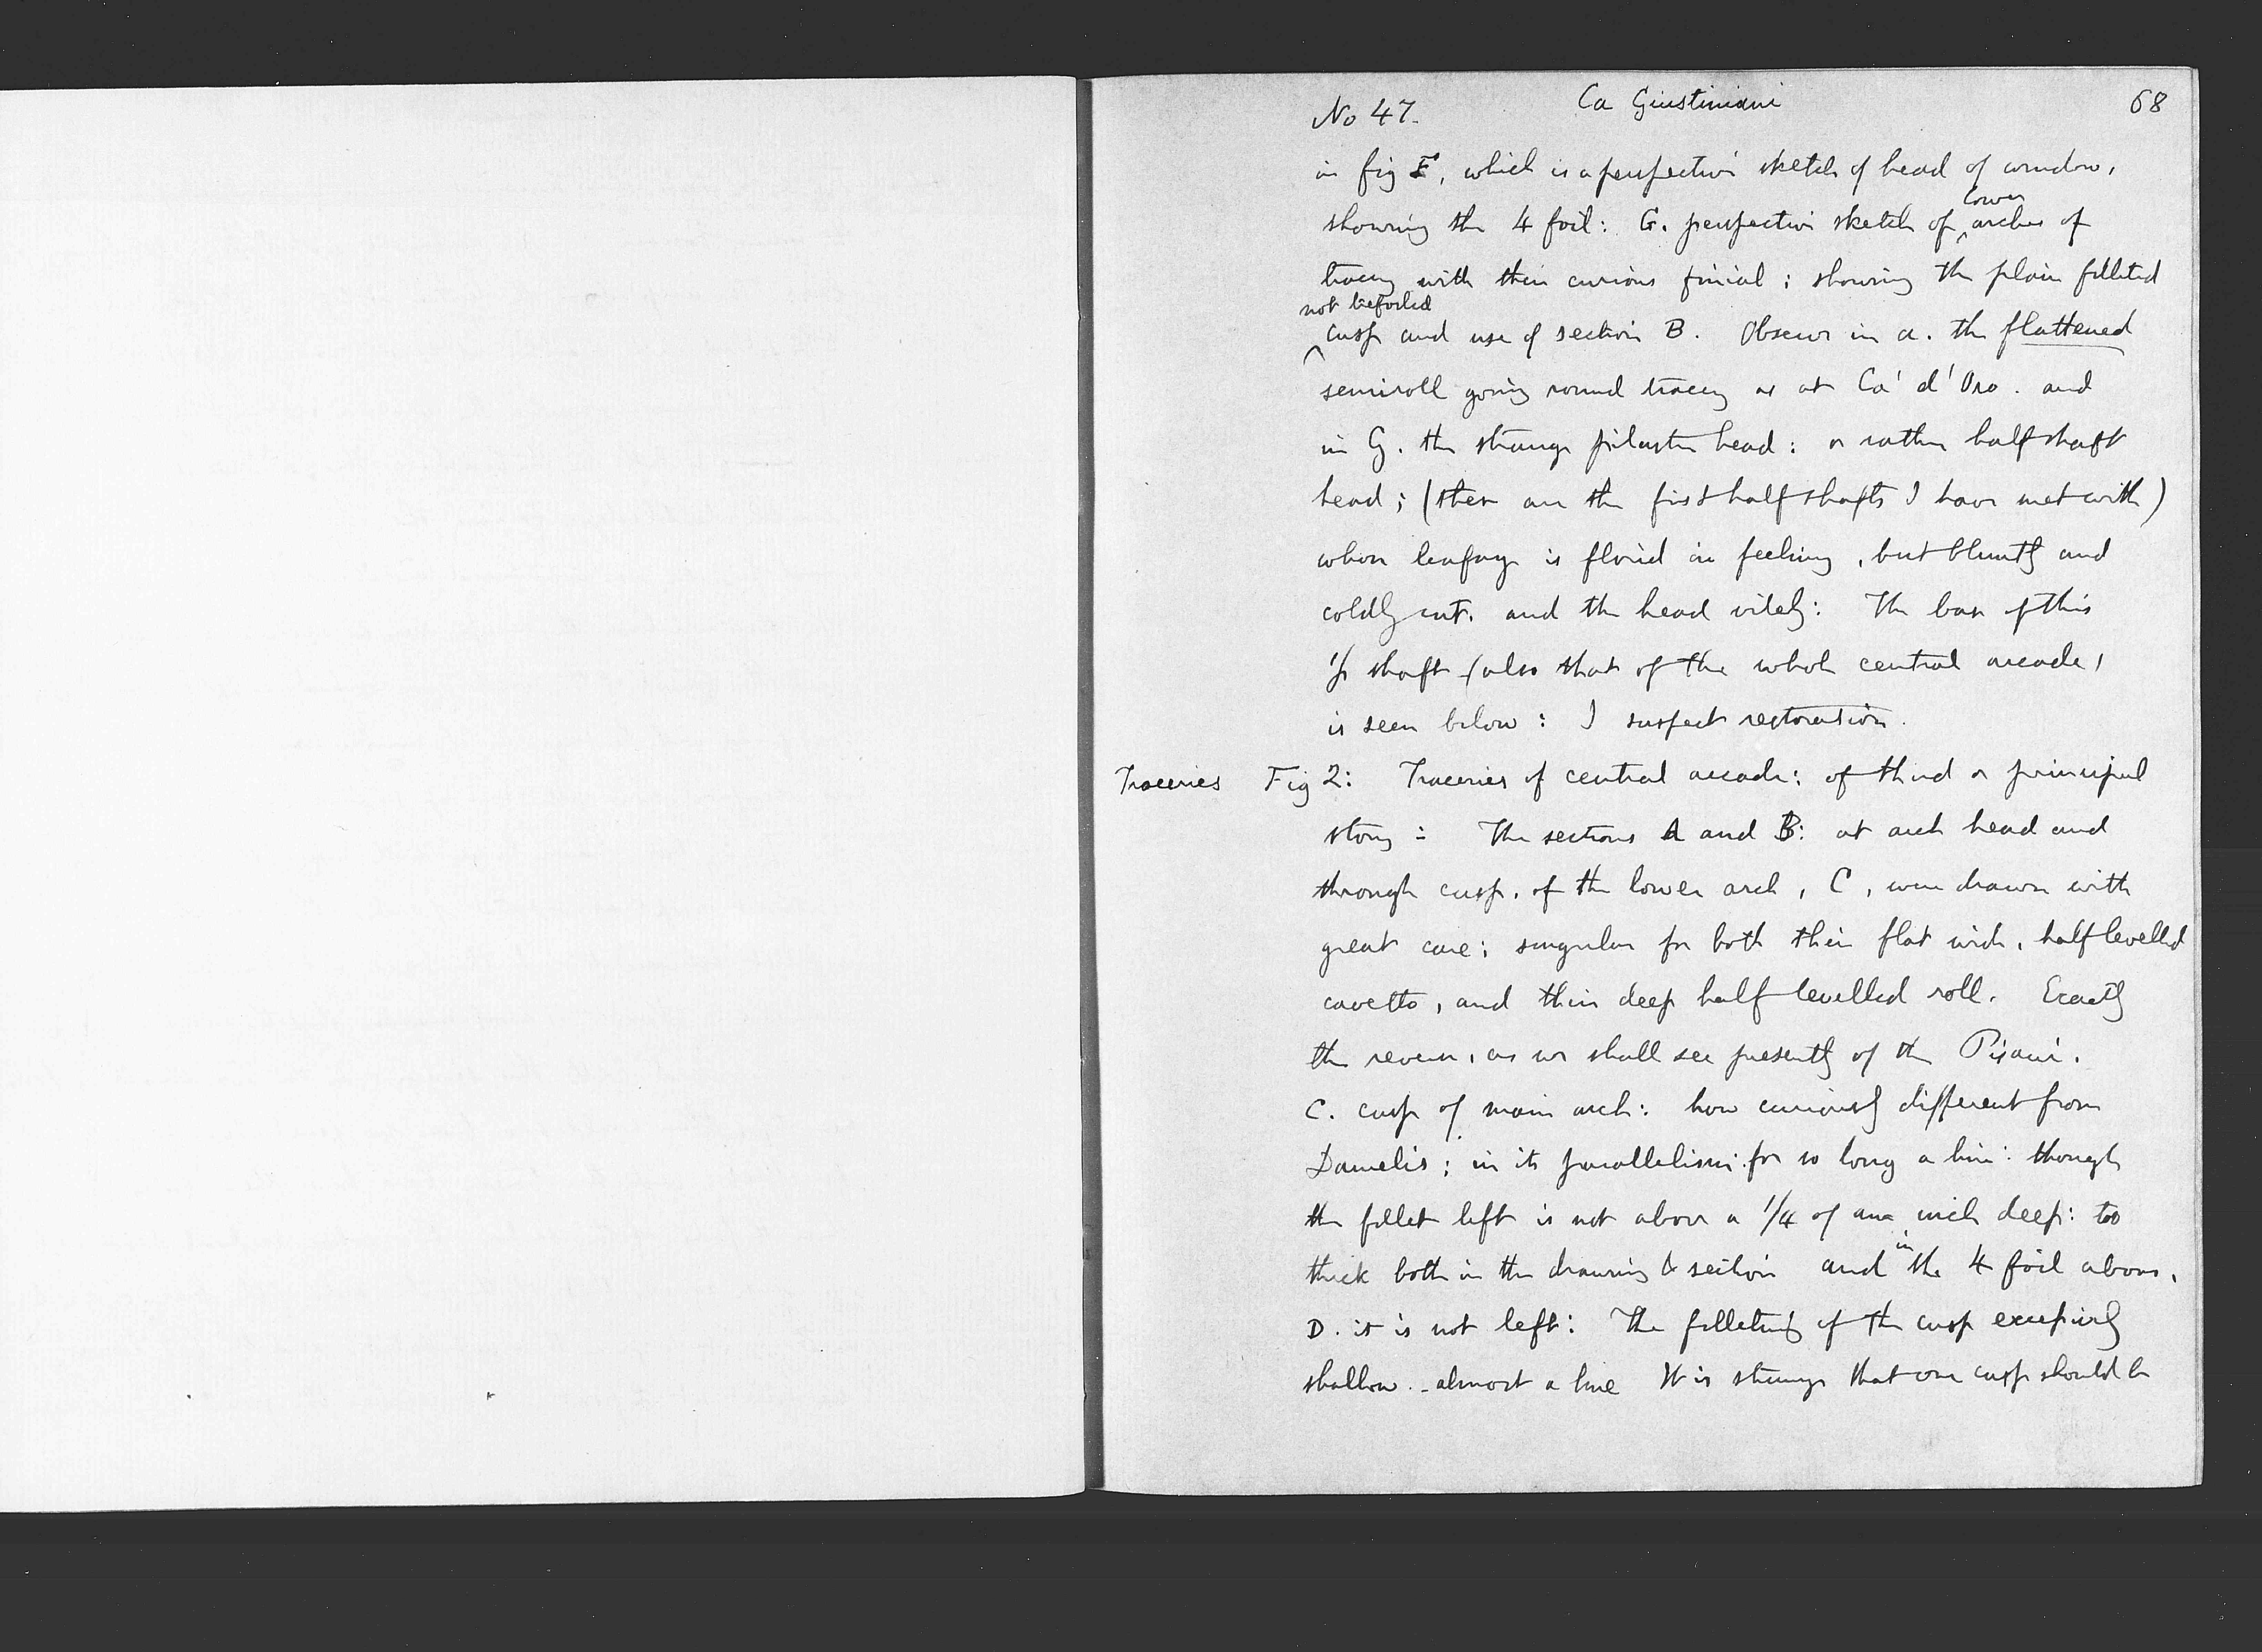 No 47. Ca Giustiniani 68
in fig F, which is a perspective sketch of head of window,
showing the 4 foil: G. perspective sketch of lower arches of
tracery with their curious finial; showing the plain filleted
not trefoiled
cusp and use of section B. Observe in a. the flattened
semiroll going round tracery as at Ca' d'Oro. and
in G. the strange pilaster head: or rather half shaft
head; (these are the first half shafts I have met with)
whose leafage is florid in feeling, but bluntly and
coldly cut. and the head vilely: The base of this
1/2 shaft (also that of the whole central arcade,
is seen below: I suspect restoration.
Traceries Fig 2: Traceries of central arcade: of third or principal
story: The sections A and B: at arch head and
through cusp. of the lower arch, C, were drawn with
great care; singular for both their flat wide, half levelled
cavetto, and their deep half levelled roll. Exactly
the reverse, as we shall see presently of the Pisani.
C. cusp of main arch: how curiously different from
Danielis; in its parallelism. for so long a line: though
the fillet left is not above a 1/4 of an inch deep: too
thick both in the drawing & section and in the 4 foil above,
D. it is not left: The filleting of the cusp
shallow - almost a line It is strange that one cusp should be